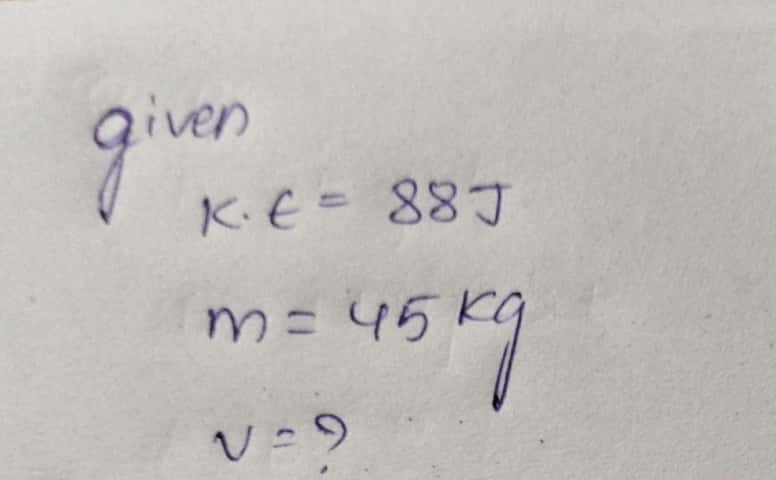 given
K.E = 88J
m = 45 kg
v = ?